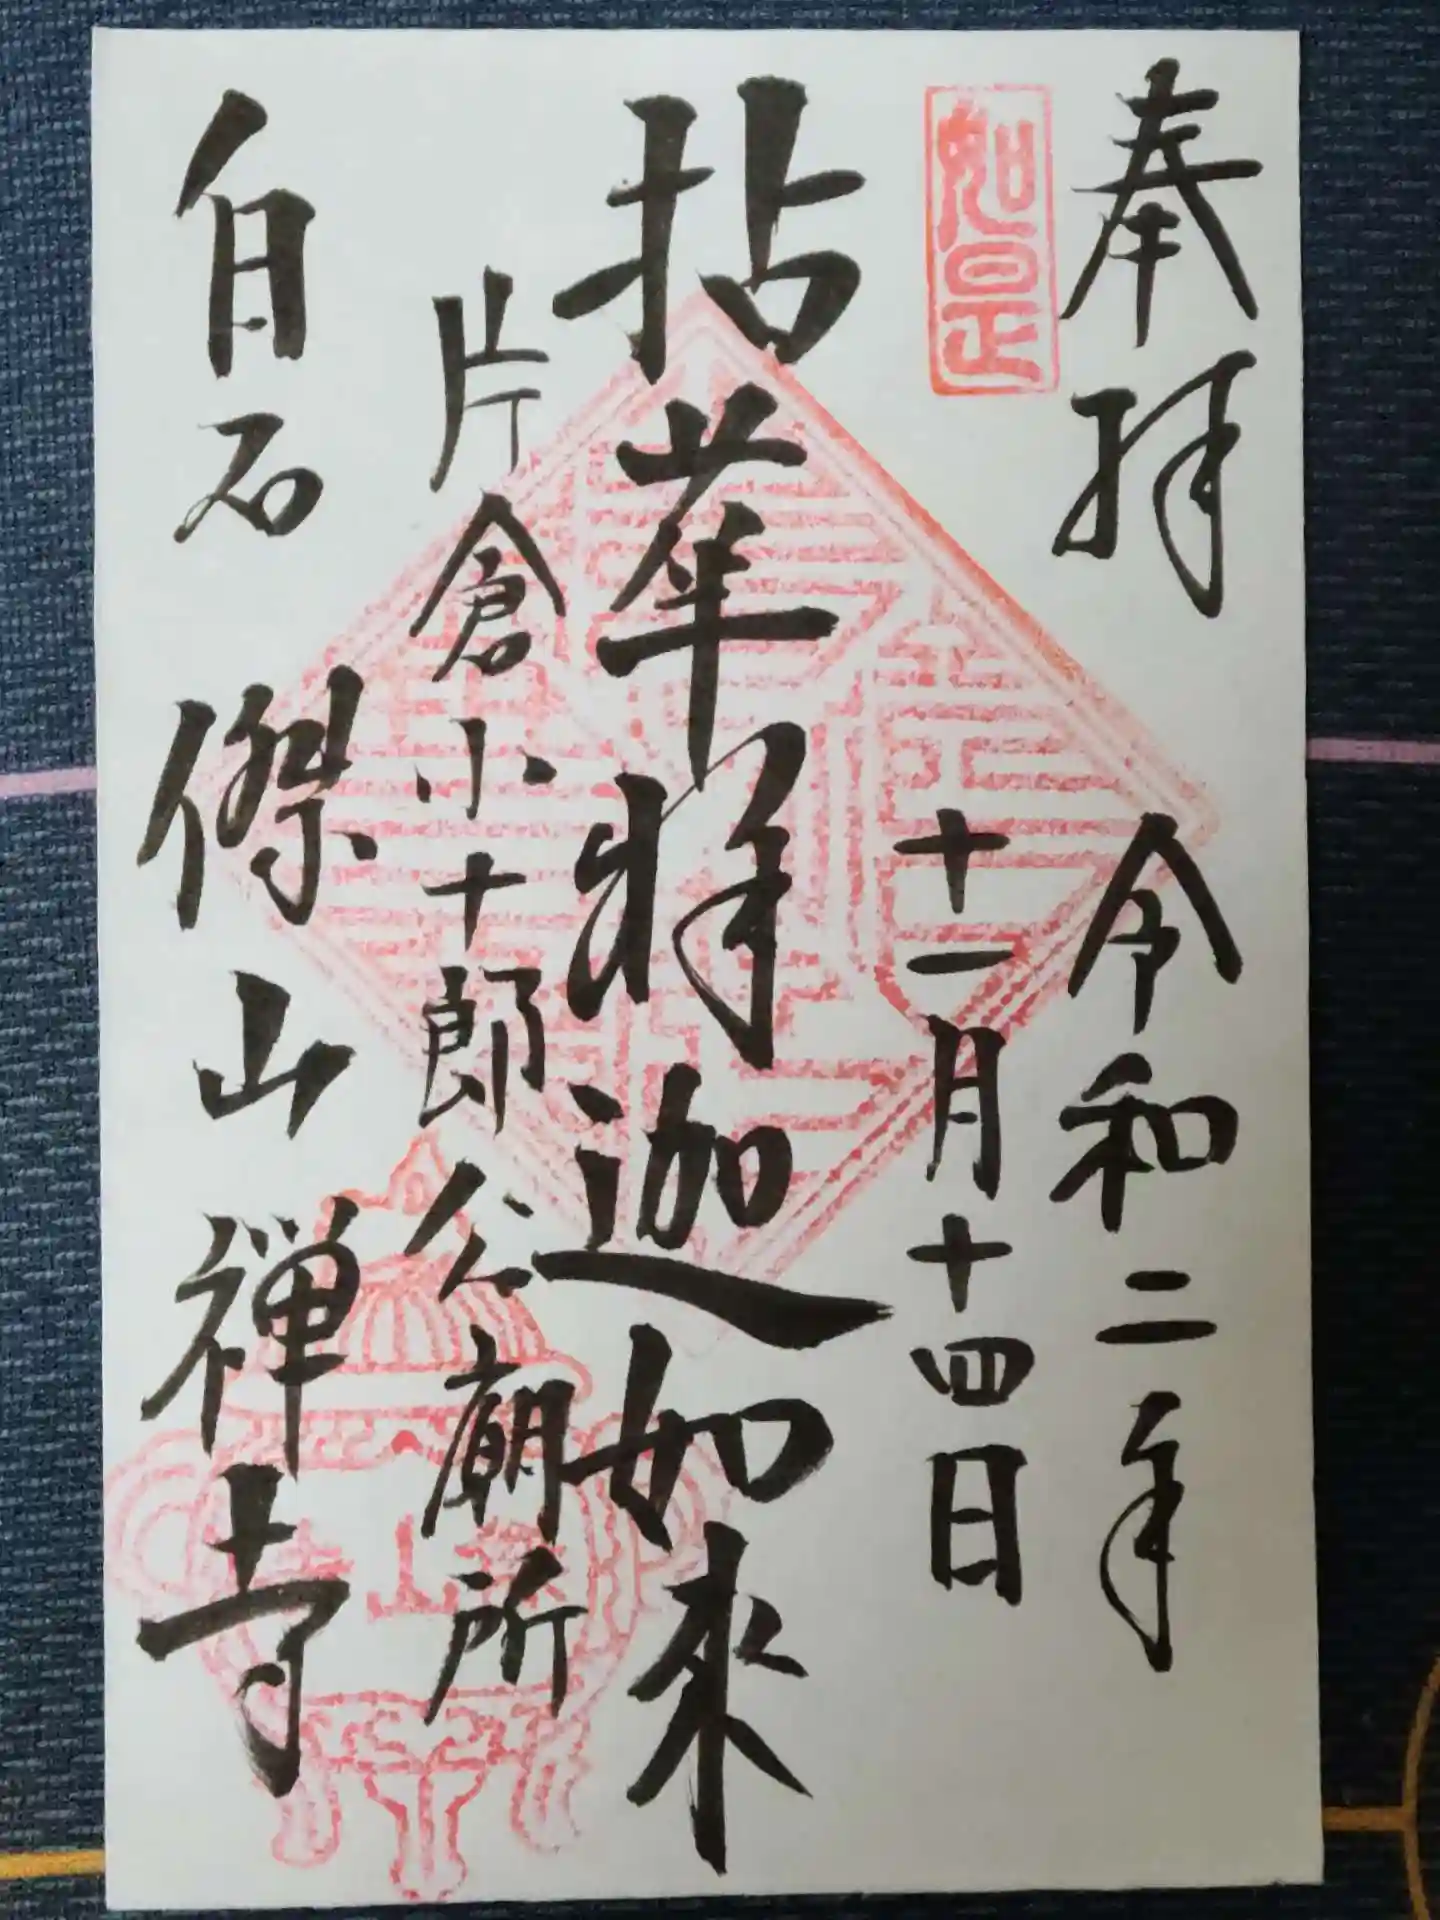 奉拝
令和二年
十一月十四日
如是
拈華釈迦如來
片倉小十郎公廟所
白石
傑山禅寺